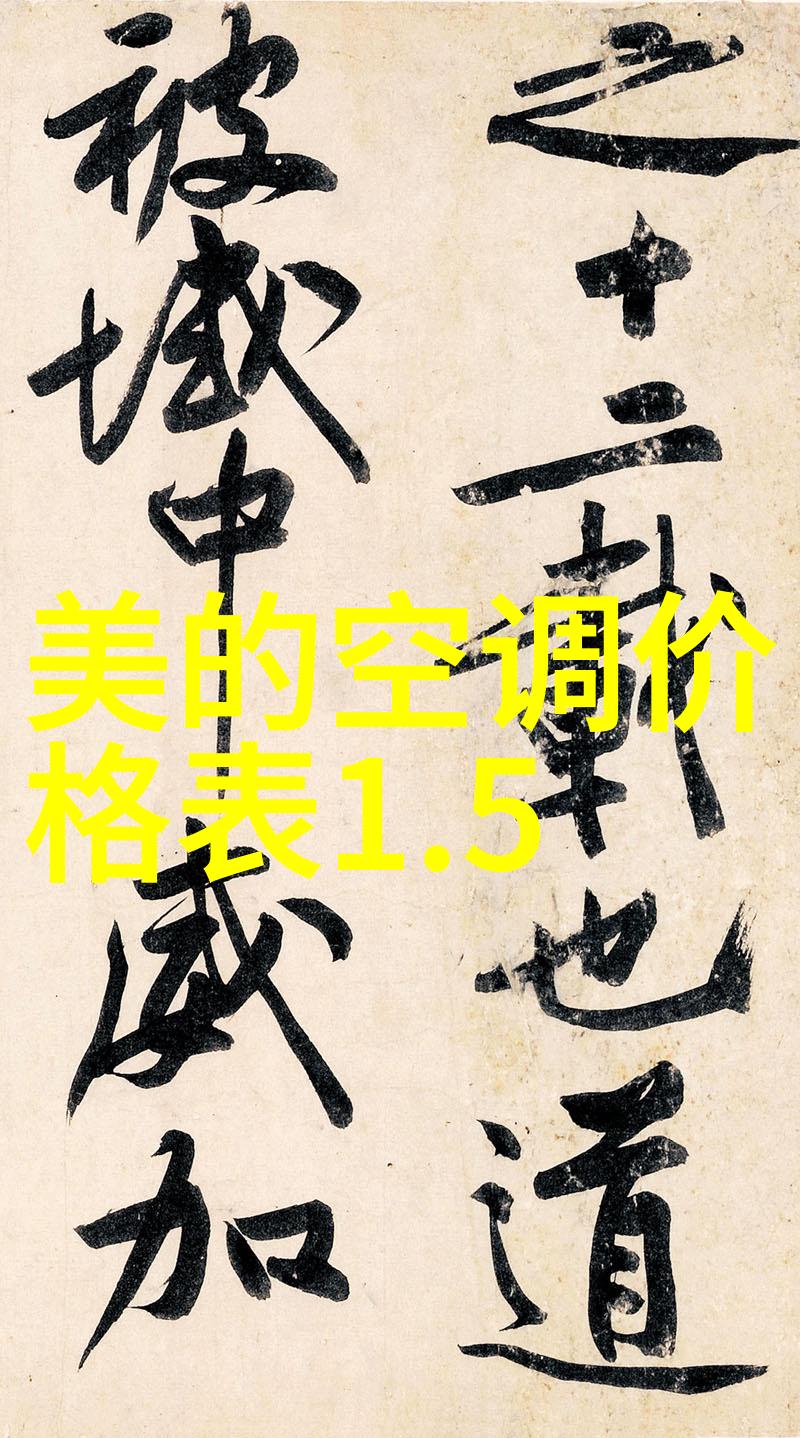 之十二載也道
被域中威加
美的空调价
格表1.5